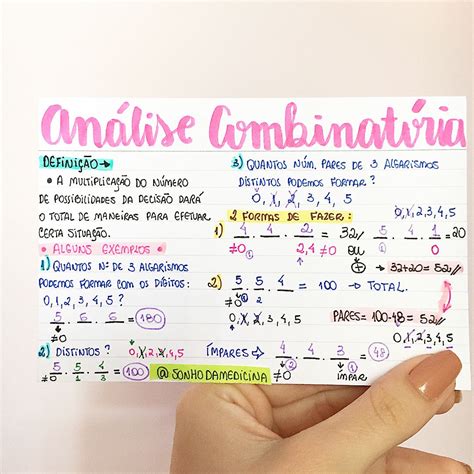 Análise Combinatória
DEFINIÇÃO →
• A MULTIPLICAÇÃO DO NÚMERO
DE POSSIBILIDADES DA DECISÃO DARÁ
O TOTAL DE MANEIRAS PARA EFETUAR
CERTA SITUAÇÃO.
• ALGUNS EXEMPLOS •
1) QUANTOS Nº DE 3 ALGARISMOS
PODEMOS FORMAR COM OS DÍGITOS:
0, 1, 2, 3, 4, 5 ?
5 . 6 . 6 = 180
≠0
2) DISTINTOS ? 0, 1, 2, 3, 4, 5
5 . 5 . 4 = 100
≠0 5 1 4 3
3) QUANTOS NÚM. PARES DE 3 ALGARISMOS
DISTINTOS PODEMOS FORMAR ?
0, 1, 2, 3, 4, 5
2 FORMAS DE FAZER: 0, 1, 2, 3, 4, 5
1) 4 . 4 . 2 = 32 // 5 . 4 . 1 = 20
≠0 2, 4 ≠0 ou 0
+ → 32+20 = 52 //
2) 5 . 5 . 4 = 100 → TOTAL.
≠0
0, 1, 2, 3, 4, 5 PARES = 100-48 = 52 //
0, 1, 2, 3, 4, 5
ÍMPARES → 4 . 4 . 3 = 48
≠0 ÍMPAR
@SONHODAMEDICINA